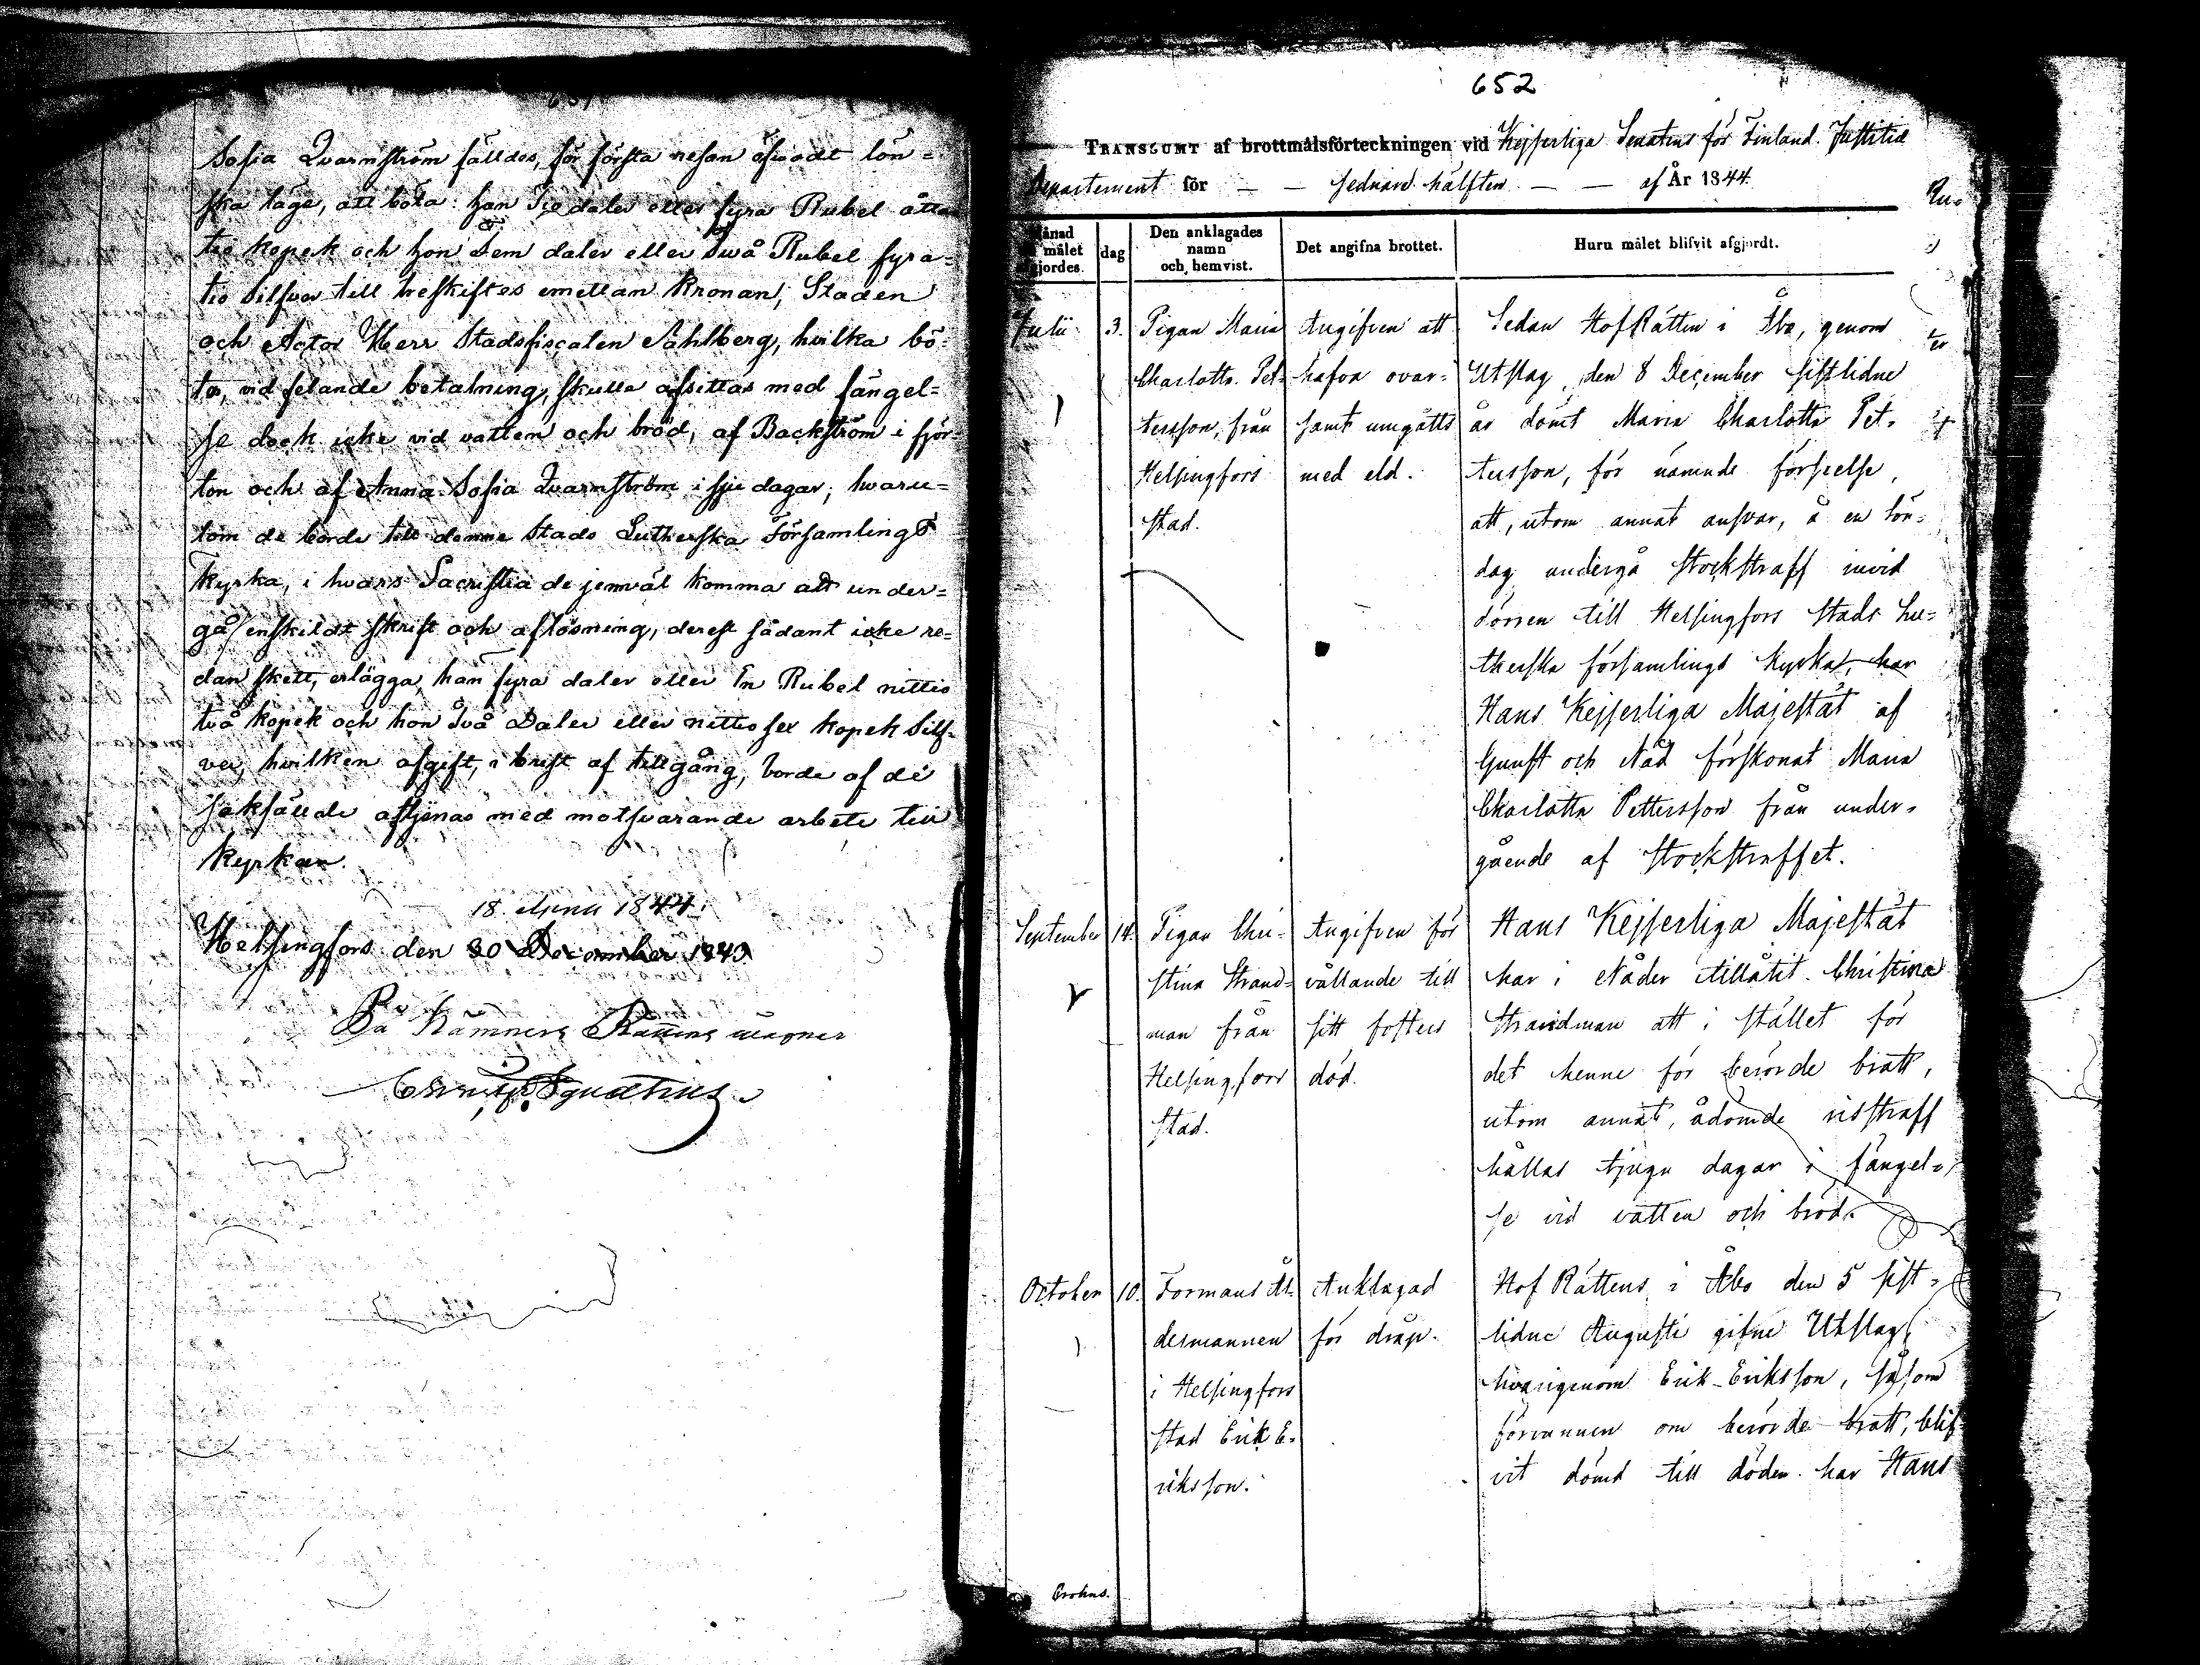 Sofia Qvarnström fälldes, för första resan öfvadt lön=
ska läge, att böta: han Tio daler eller fyra Rubel åtta
tio kopek och hon Fem daler eller Två Rubel fyra=
tio Silfver till treskiftes emellan Kronan, Staden
och Actor Herr Stadsfiscalen Sahlberg, hvilka bö=
ter, vid felande betalning, skulle afsittas med fängel=
se dock icke vid vatten och bröd, af Backström i fjor=
ton och af Anna Sofia Qvarnström i sju dagar; hvaru=
tom de borde till denne Stads Lutherska Församlings
Kyrka, i hvars Sacristia de jemväl komma att under=
gå enskildt skrift och aflösning, derest sådant icke re=
dan skett, erlägga, han fyra daler eller En Rubel nittio
två kopek och hon Två Daler eller nittiosex kopek Silf=
ver, hvilken afgift, i brist af tillgång, borde af de
sakfällde aftjenas med motsvarande arbete till
Kyrkan.
18 1844.
Helsingfors den 30 December 1843
På Kämners Rättens vägnar
Ignatius
652
TRANSUMT af brottmålsförteckningen vid Kejserliga Senatens för Finland Justitiæ
Departement för — — sednare hälften — — af År 1844.
Månad målet gjordes.
dag
Den anklagades namn och hemvist.
Det angifna brottet.
Huru målet blifvit afgjordt.
Julii 3. Pigan Maria Angifven att Sedan HofRätten i Åbo, genom
Charlotta Pet= hafva ovar= Utslag den 8 December sistlidne
tersson, från samt umgåtts år dömt Maria Charlotta Pet=
Helsingfors med eld. tersson, för nämnde förseelse,
stad. att, utom annat ansvar, å en Sön=
dag undergå stockstraff invid
dörren till Helsingfors stads Lu=
therska församlings kyrka, har
Hans Kejserliga Majestät af
Gunst och Nåd förskonat Maria
Charlotta Pettersson från under=
gående af stockstraffet.
September 14. Pigan Chri= Angifven för Hans Kejserliga Majestät
stina Strand= vållande till har i Nåder tillåtit Christina
man från sitt fosters Strandman att i stället för
Helsingfors död. det henne för berörde brott,
stad. utom annat, ådömde risstraff
hållas tjugu dagar i fängel=
se vid vatten och bröd.
October 10. Formans Ål= Anklagad Hof Rättens i Åbo den 5 sist=
dermannen för dråp. lidne Augusti gifne Utslag,
i Helsingfors hvarigenom Erik Eriksson, såsom
stad Erik E= förvunnen om berörde brott, blif=
riksson. vit dömd till döden har Hans